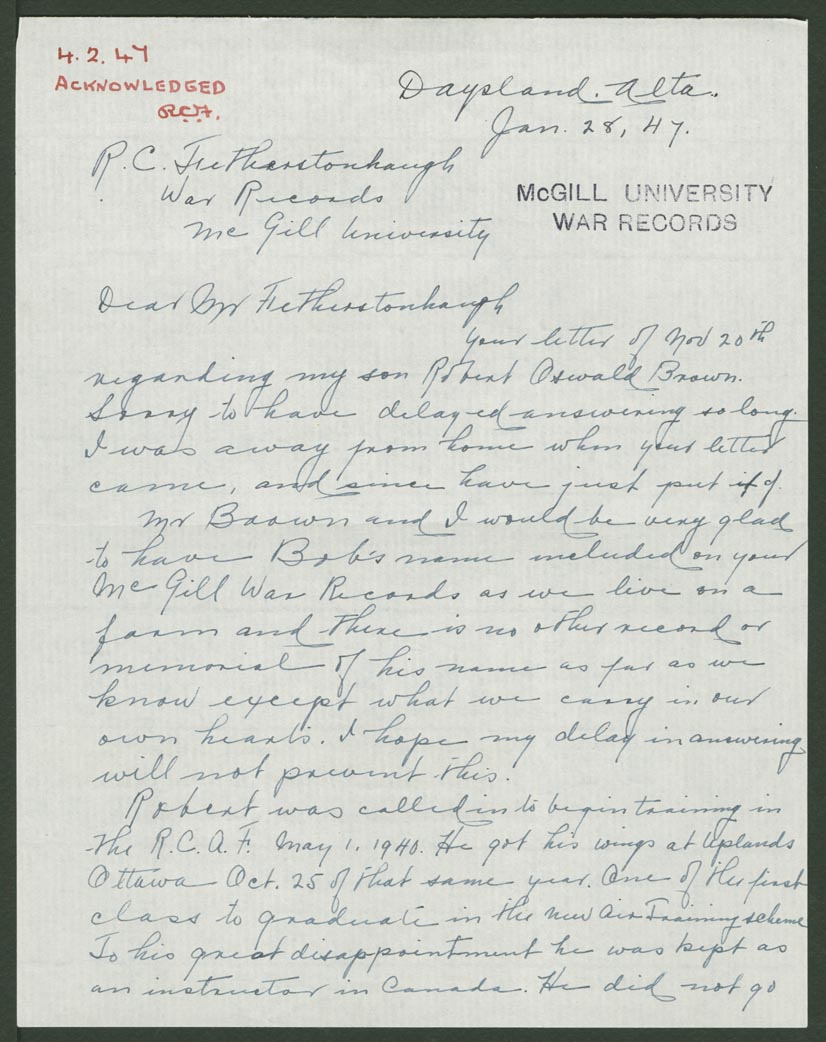 4.2.47
ACKNOWLEDGED
R.C.F.
Daysland. Alta.
Jan. 28, 47.
R. C. Fetherstonhaugh
War Records
McGILL UNIVERSITY
WAR RECORDS
Mc Gill University
Dear Mr Fetherstonhaugh
Your letter of Nov 20th
regarding my son Robert Oswald Brown.
Sorry to have delayed answering so long.
I was away from home when your letter
came, and since have just put it of.
Mr Brown and I would be very glad
to have Bob's name included on your
Mc Gill War Records as we live on a
farm and there is no other record or
memorial of his name as far as we
know except what we carry in our
own hearts. I hope my delay in answering
will not prevent this.
Robert was called in to begin training in
the R.C.A.F. May 1, 1940. He got his wings at Uplands
Ottawa Oct. 25 of that same year. One of the first
class to graduate in the new Air Training scheme
To his great disappointment he was kept as
an instructor in Canada. He did not go